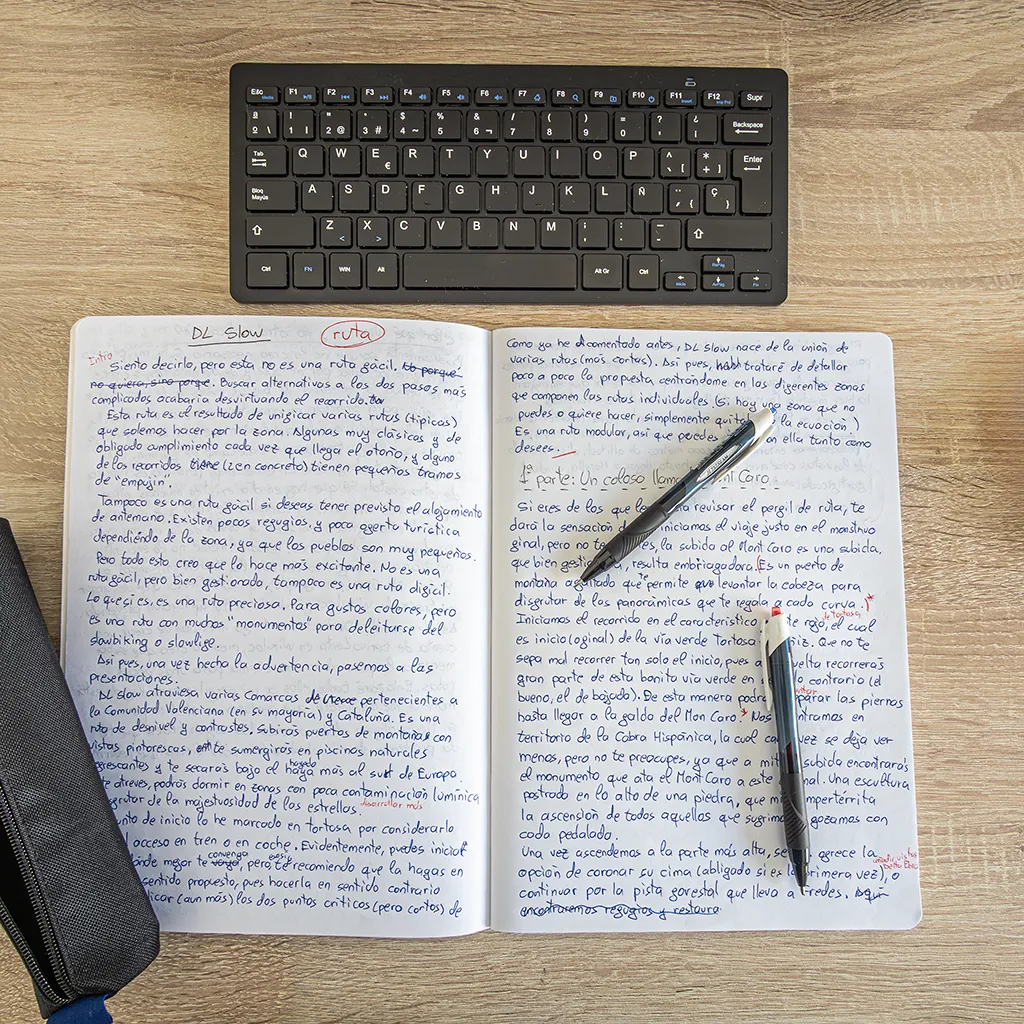 Esc F1 F2 F3 F4 F5 F6 F7 F8 F9 F10 F11 F12 Supr
ª º \ ! 1 | " 2 @ · 3 # $ 4 ~ % 5 & 6 ¬ / 7 ( 8 ) 9 = 0 ? ' ¿ ¡ Backspace
Tab Q W E € R T Y U I O P ^ ` [ * + ] Enter
Bloq Mayús A S D F G H J K L Ñ ¨ ´ { Ç }
Z < X > C V B N M ; , : . _ -
Ctrl FN WIN Alt Alt Gr Ctrl Inicio RePág AvPág Fin
DL Slow ruta
Intro
Siento decirlo, pero esta no es una ruta fácil. No porque
no quiera, sino porqe. Buscar alternativas a los dos pasos más
complicados acabaría desvirtuando el recorrido.
Esta ruta es el resultado de unificar varias rutas (típicas)
que solemos hacer por la zona. Algunas muy clásicas y de
obligado cumplimiento cada vez que llega el otoño, y alguno
de los recorridos tiene (2 en concreto) tienen pequeños tramos
de "empujin".
Tampoco es una ruta fácil si deseas tener previsto el alojamiento
de antemano. Existen pocos refugios, y poca oferta turística
dependiéndo de la zona, ya que los pueblos son muy pequeños.
Pero todo esto creo que lo hace más excitante. No es una
ruta fácil, pero bien gestionada, tampoco es una ruta difícil.
Lo que sí es, es una ruta preciosa. Para gustos colores, pero
es una ruta con muchos "monumentos" para deleitarse del
slowbiking o slowlife.
Así pues, una vez hecha la advertencia, pasemos a las
presentaciones.
DL Slow atraviesa varias Comarcas pertenecientes a
la Comunidad Valenciana (en su mayoría) y Cataluña. Es una
ruta de desnivel y contrastes. Subirás puertos de montañas con
vistas pintorescas, te sumergirás en piscinas naturales
rescantes y te secarás bajo el hayedo más al sur de Europa.
te atreves, podrás dormir en zonas con poca contaminación lumínica
frutar de la majestuosidad de las estrellas. desarrollar más
unto de inicio lo he marcado en Tortosa por considerarlo
acceso en tren o en coche. Evidentemente, puedes iniciar
onde mejor te convenga, pero te recomiendo que la hagas en
sentido propuesto, pues hacerla en sentido contrario
icar (aun más) los dos puntos críticos (pero cortos) de
Como ya he comentado antes, DL Slow nace de la unión de
varias rutas (más cortas). Así pues, trataré de detallar
poco a poco la propuesta centrándome en las diferentes zonas
que componen las rutas individuales (Si hay una zona que no
puedes o quiere hacer, simplemente quita la ecuación.)
Es una ruta modular, así que puedes on ella tanto como
desees.
1ª parte: Un coloso llam Mont Caro
Si eres de los que le a revisar el perfil de ruta, te
dará la sensación de iniciamos el viaje justo en el monstruo
final, pero no te es, la subida al Mont Caro es una subida,
que bien gesti , resulta embriagadora. (Es un puerto de
montaña asfaltado que te permite levantar la cabeza para
disfrutar de las panorámicas que te regala a cada curva.)
Iniciamos el recorrido en el característico te rojo, el cual
de Tortosa
es inicio (o final) de la vía verde Tortosa iz. Que no te
sepa mal recorrer tan solo el inicio, pues a elta recorrerás
gran parte de esta bonita vía verde en s o contrario (el
bueno, el de bajada). De esta manera podrá parar las piernas
hasta llegar a la falda del Mon Caro. Nos ntramos en
territorio de la Cabra Hispánica, la cual ca vez se deja ver
menos, pero no te preocupes, ya que a mit subida encontrarás
el monumento que ata el Mont Caro a este nal. Una escultura
postrada en lo alto de una piedra, que mi mpertérrita
la ascensión de todos aquellos que sufrim gozamos con
cada pedalada.
Una vez ascendemos a la parte más alta, se ofrece la
opción de coronar su cima (obligado si es la primera vez), o
continuar por la pista forestal que lleva a Fredes. Aquí
encontraremos refugios y restaura